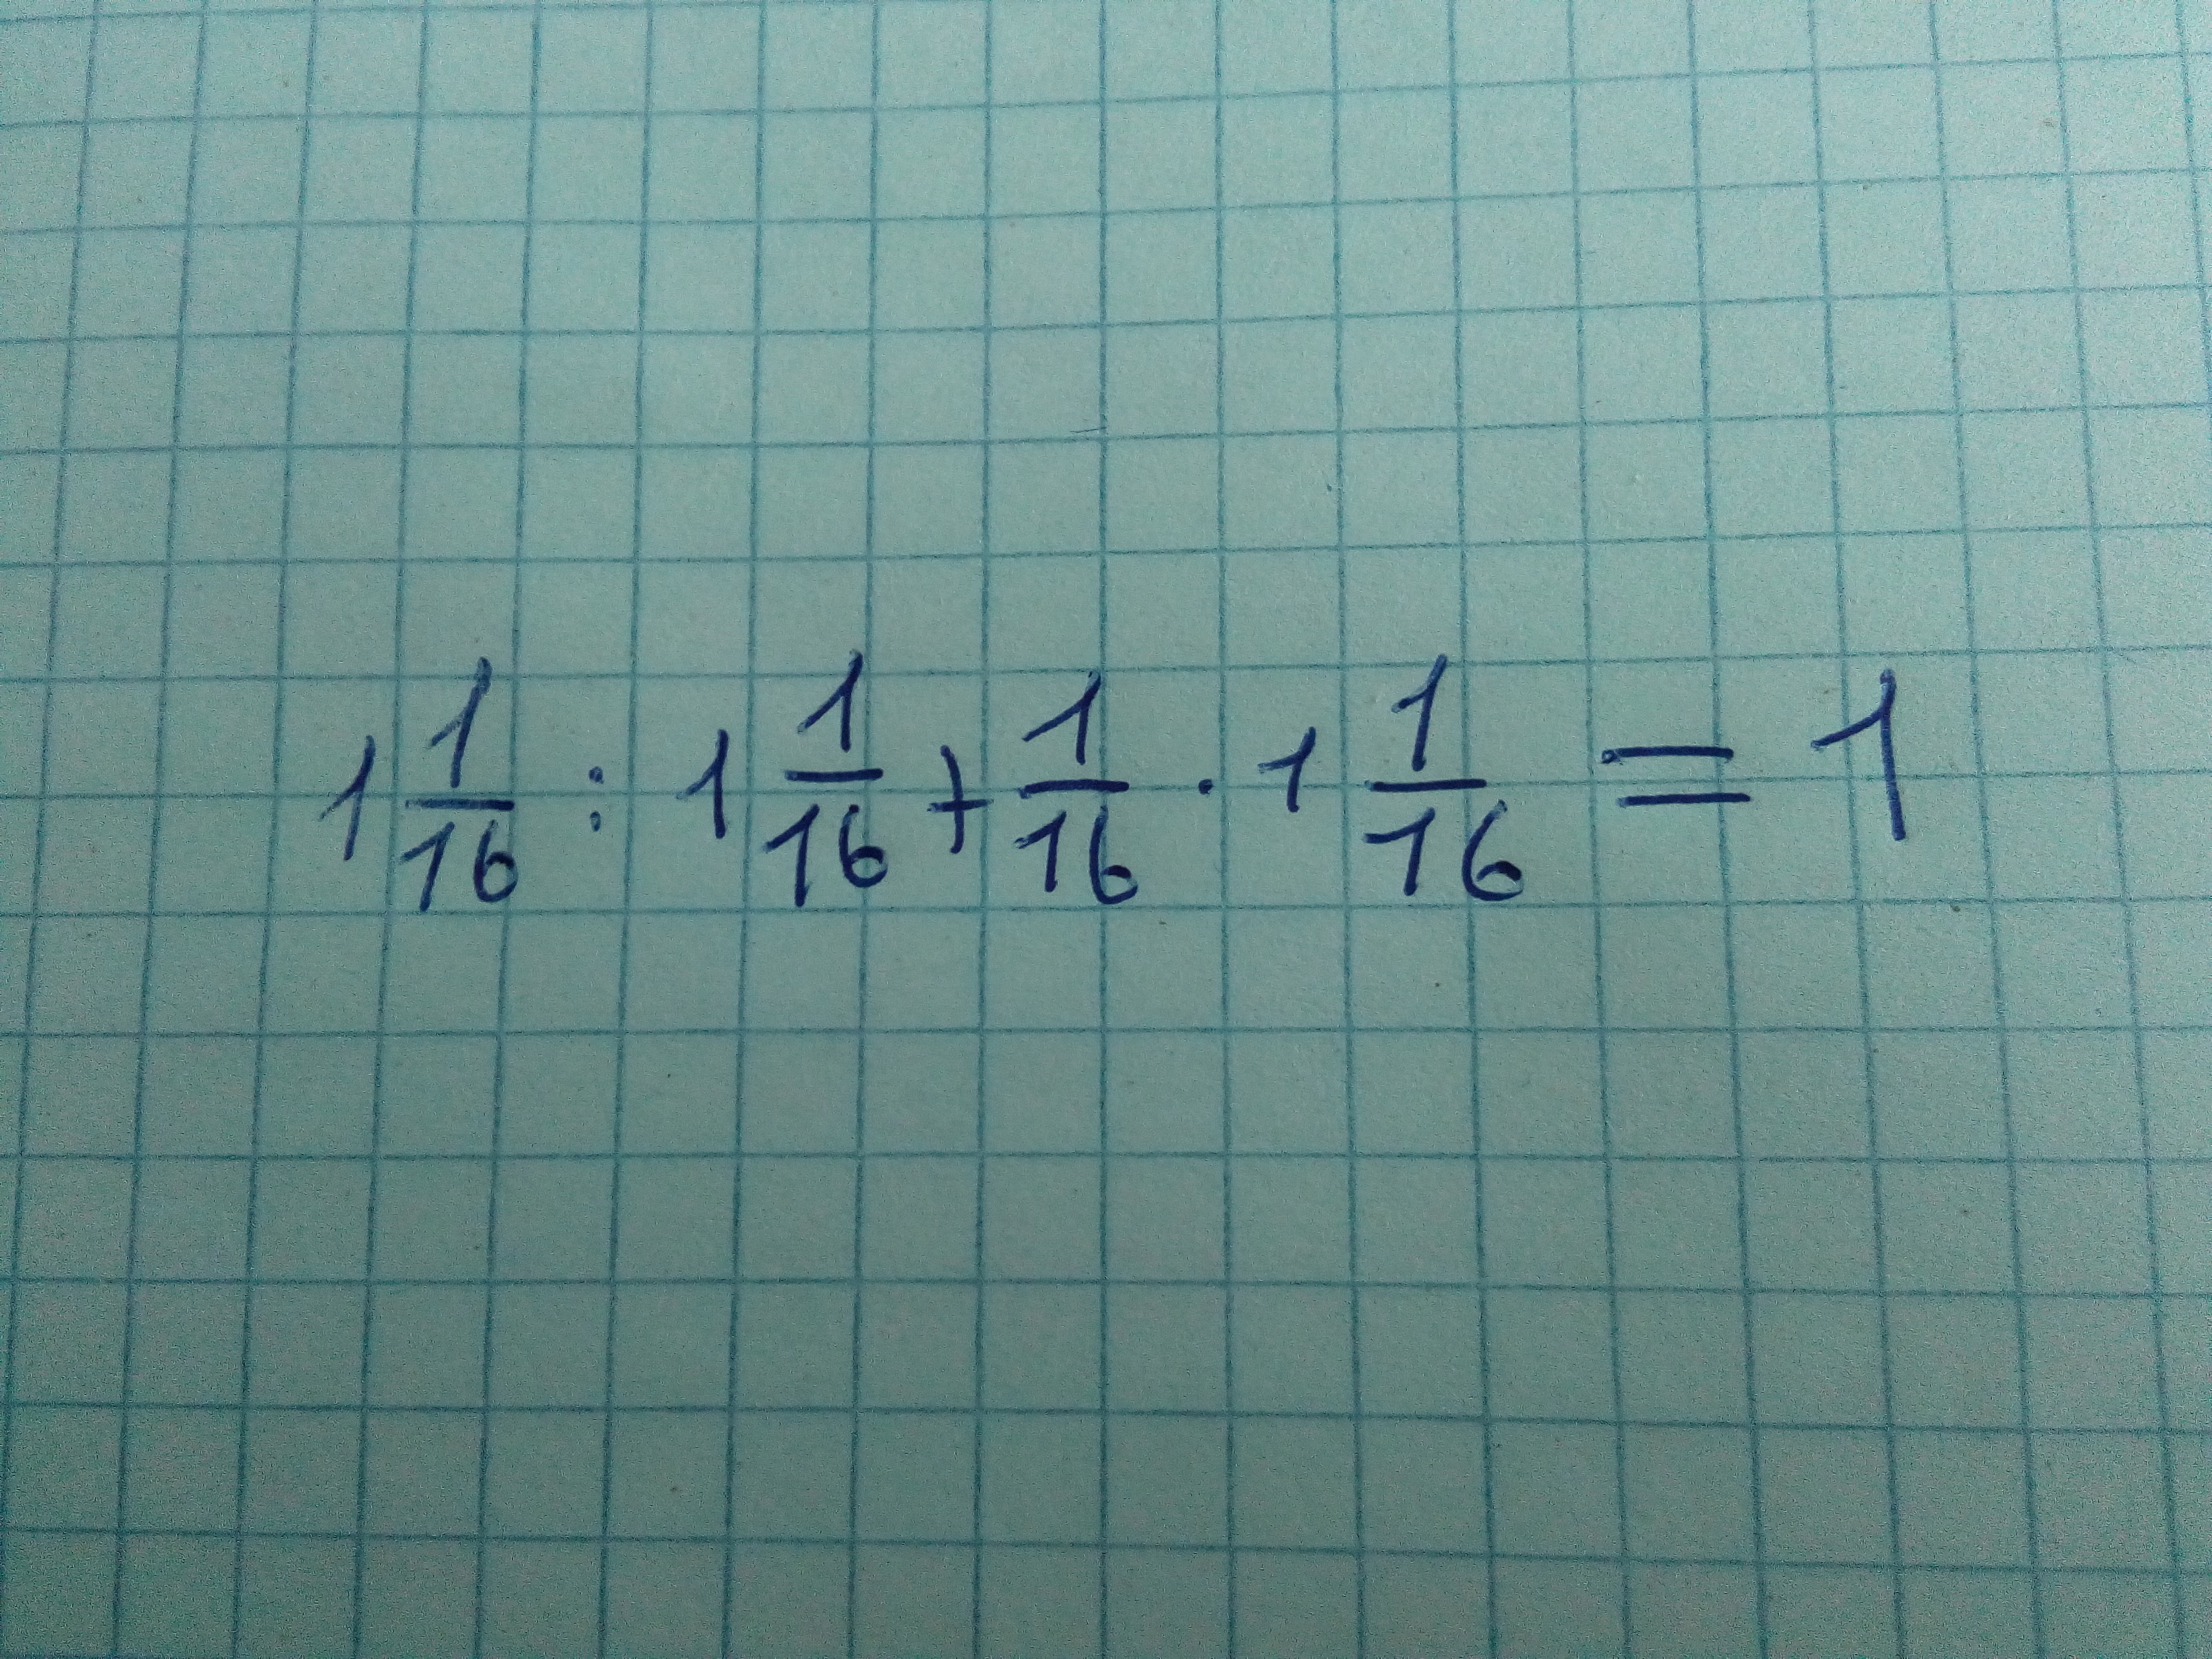 1 1/16 : 1 1/16 + 1/16 · 1 1/16 = 1